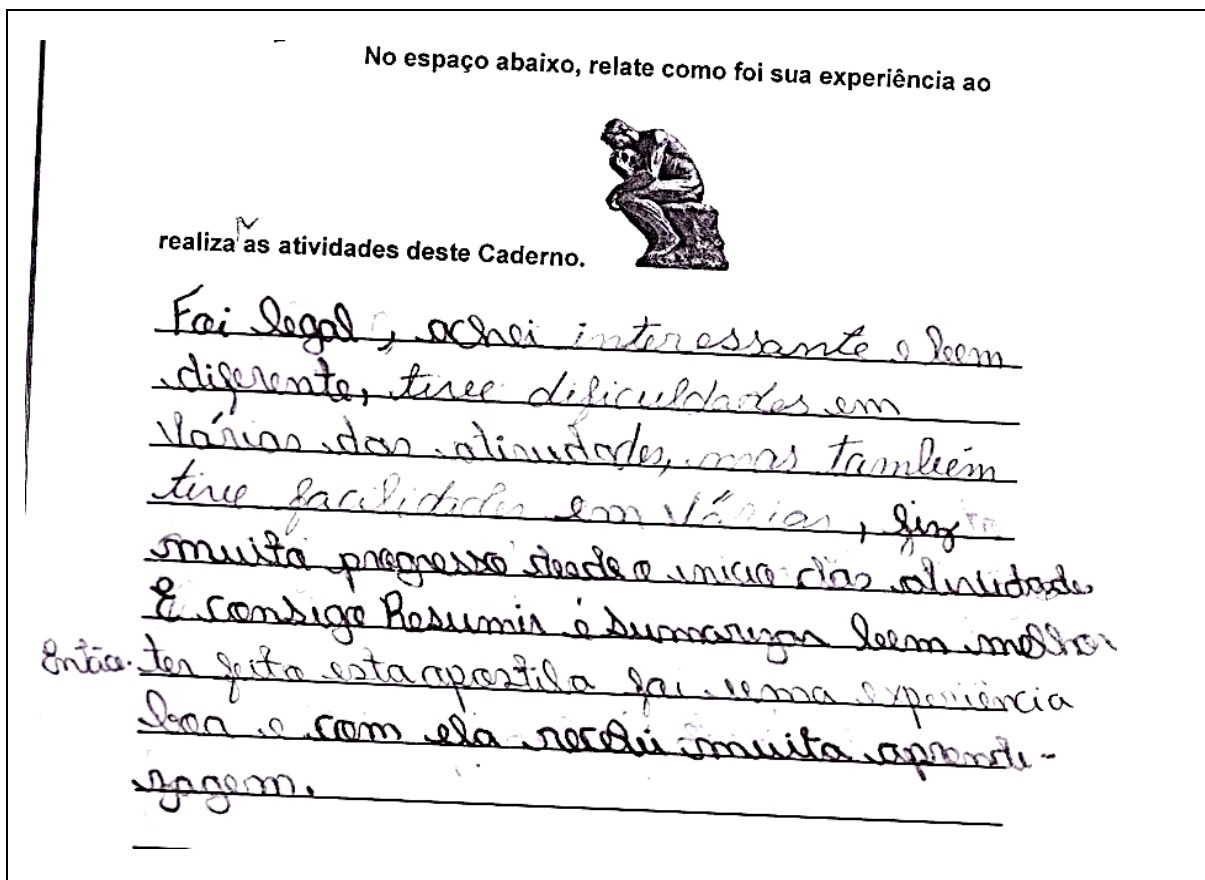 No espaço abaixo, relate como foi sua experiência ao
realizar as atividades deste Caderno.
Foi legal, achei interessante e bem
diferente, tive dificuldades em
várias das atividades, mas também
tive facilidades em várias, fiz
muito progresso desde o início das atividade
E consigo Resumir e sumarizar bem melhor
Então. ter feito esta apostila foi uma experiência
boa e com ela recebi muita aprendi-
zagem.